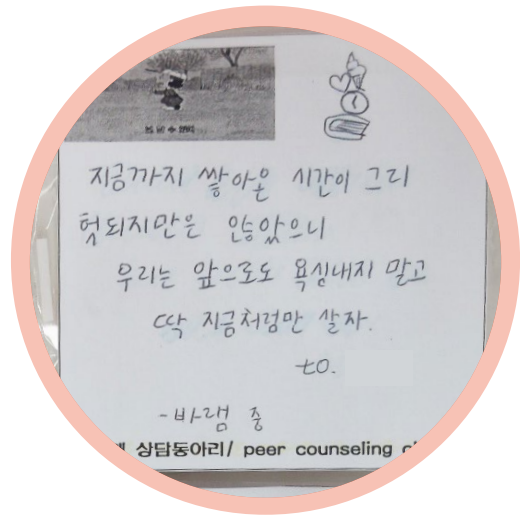 지금까지 쌓아온 시간이 그리
헛되지만은 않았으니
우리는 앞으로도 욕심내지 말고
딱 지금처럼만 살자.
to.
-바램 중
상담동아리/ peer counseling